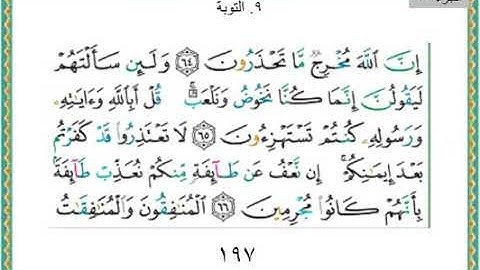 ٩. التوبة
إِنَّ ٱللَّهَ مُخْرِجٌ مَّا تَحْذَرُونَ ٦٤ وَلَئِن سَأَلْتَهُمْ
لَيَقُولُنَّ إِنَّمَا كُنَّا نَخُوضُ وَنَلْعَبُ ۚ قُلْ أَبِٱللَّهِ وَءَايَٰتِهِ
وَرَسُولِهِ كُنتُمْ تَسْتَهْزِءُونَ ٦٥ لَا تَعْتَذِرُوا۟ قَدْ كَفَرْتُم
بَعْدَ إِيمَٰنِكُمْ ۚ إِن نَّعْفُ عَن طَآئِفَةٍ مِّنكُمْ نُعَذِّبْ طَآئِفَةًۢ
بِأَنَّهُمْ كَانُوا۟ مُجْرِمِينَ ٦٦ ٱلْمُنَٰفِقُونَ وَٱلْمُنَٰفِقَٰتُ
١٩٧